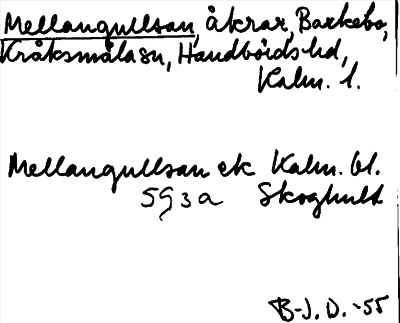 Mellangullsan, åkrar, Barkebo,
Kråksmåla sn, Handbörds hd,
Kalm. l.
Mellangullsan ek Kalm. bl.
5G 3a Skoghult
B-J. D. -55